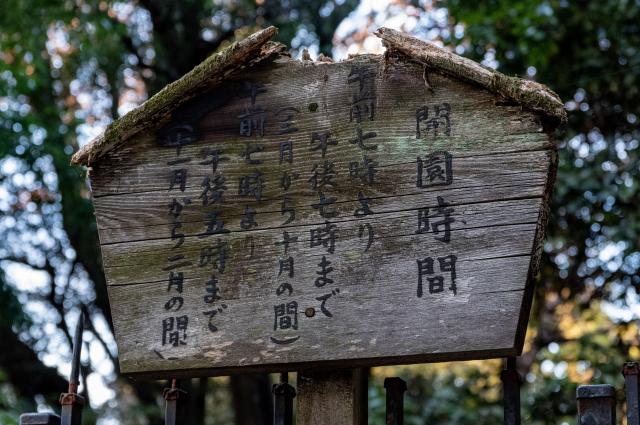 開園時間
午前七時より
午後七時まで
(三月から十月の間)
午前七時より
午後五時まで
(十一月から二月の間)